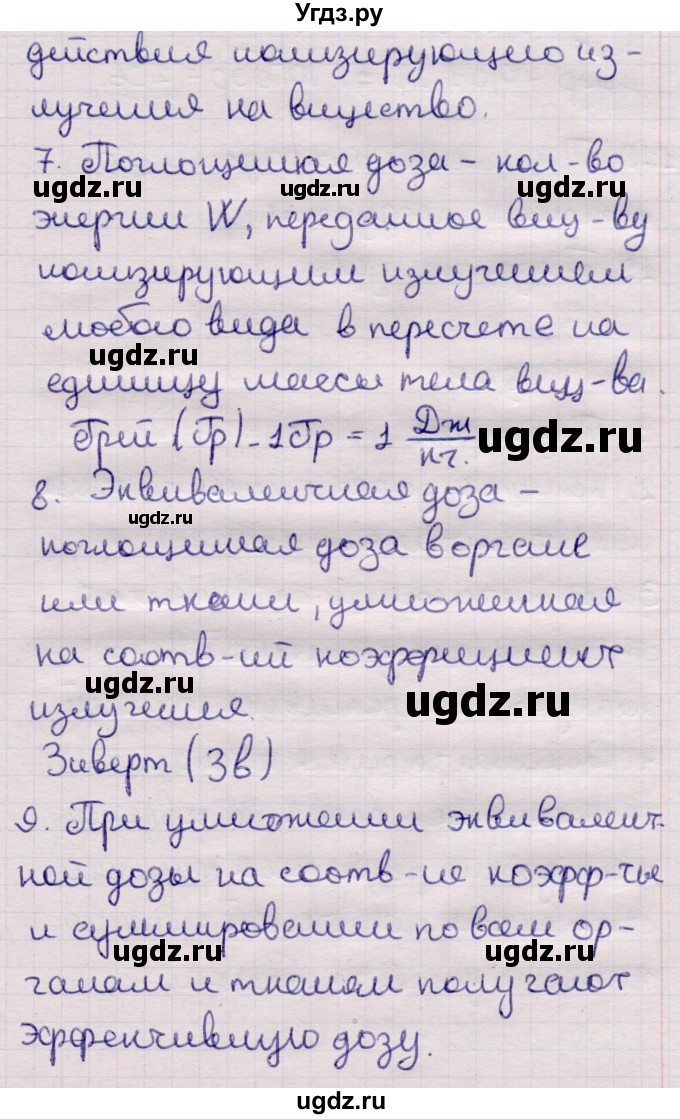 Угдз.ру
действия ионизирующего из-
лучения на вищество.
7. Поглощенная доза - кол-во
ugdz.ru ugdz.ru ugdz.ru
энергии W, переданное вищ-ву
ионизирующим излучением
любого вида в пересчете на
ugdz.ru
единицу массы тела вищ-ва.
Грей (Гр) - 1Гр = 1 Дж/кг. ugdz.ru
8. Эквивалентная доза -
ugdz.ru
поглощенная доза в органе
или ткани, умноженная
на соотв-ий коэффициент
ugdz.ru ugdz.ru
излучения.
Зиверт (Зв)
9. При умножении эквивалент-
ugdz.ru
ной дозы на соотв-ие коэфф-ты
и суммировании по всем ор-
ugdz.ru ugdz.ru
ганам и тканям получают
эффективную дозу.
ugdz.ru